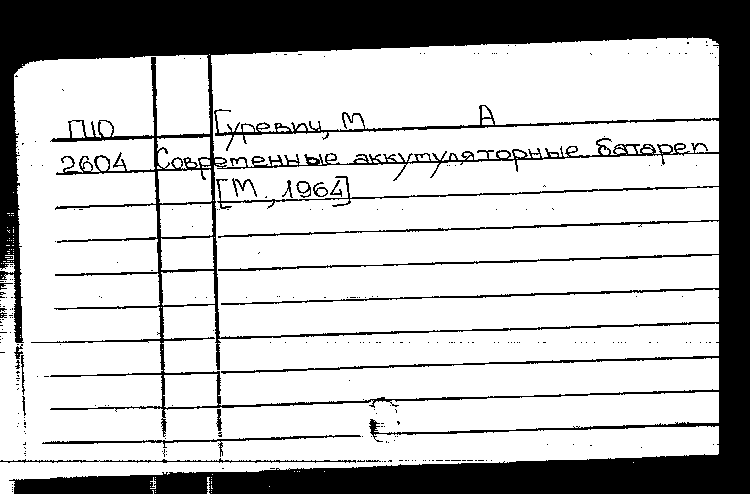 П10 Гуревич, М А
2604 Современные аккумуляторные батареи
[М., 1964]